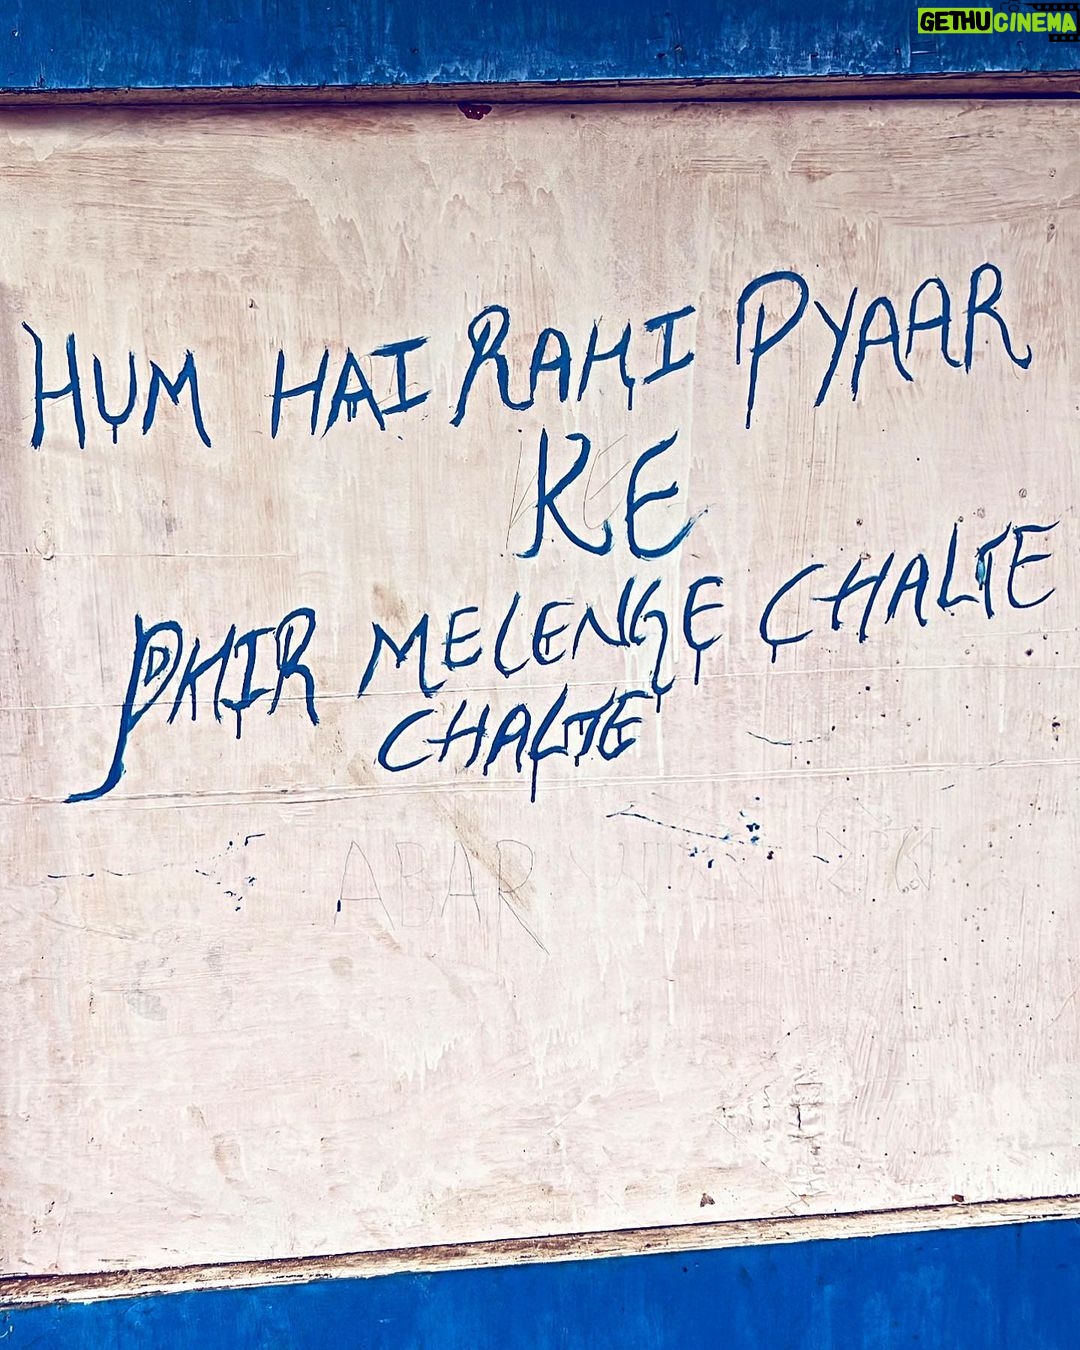 GETHU CINEMA
HUM HAI RAHI PYAAR
KE
PHIR MELENGE CHALTE
CHALTE
ABAR